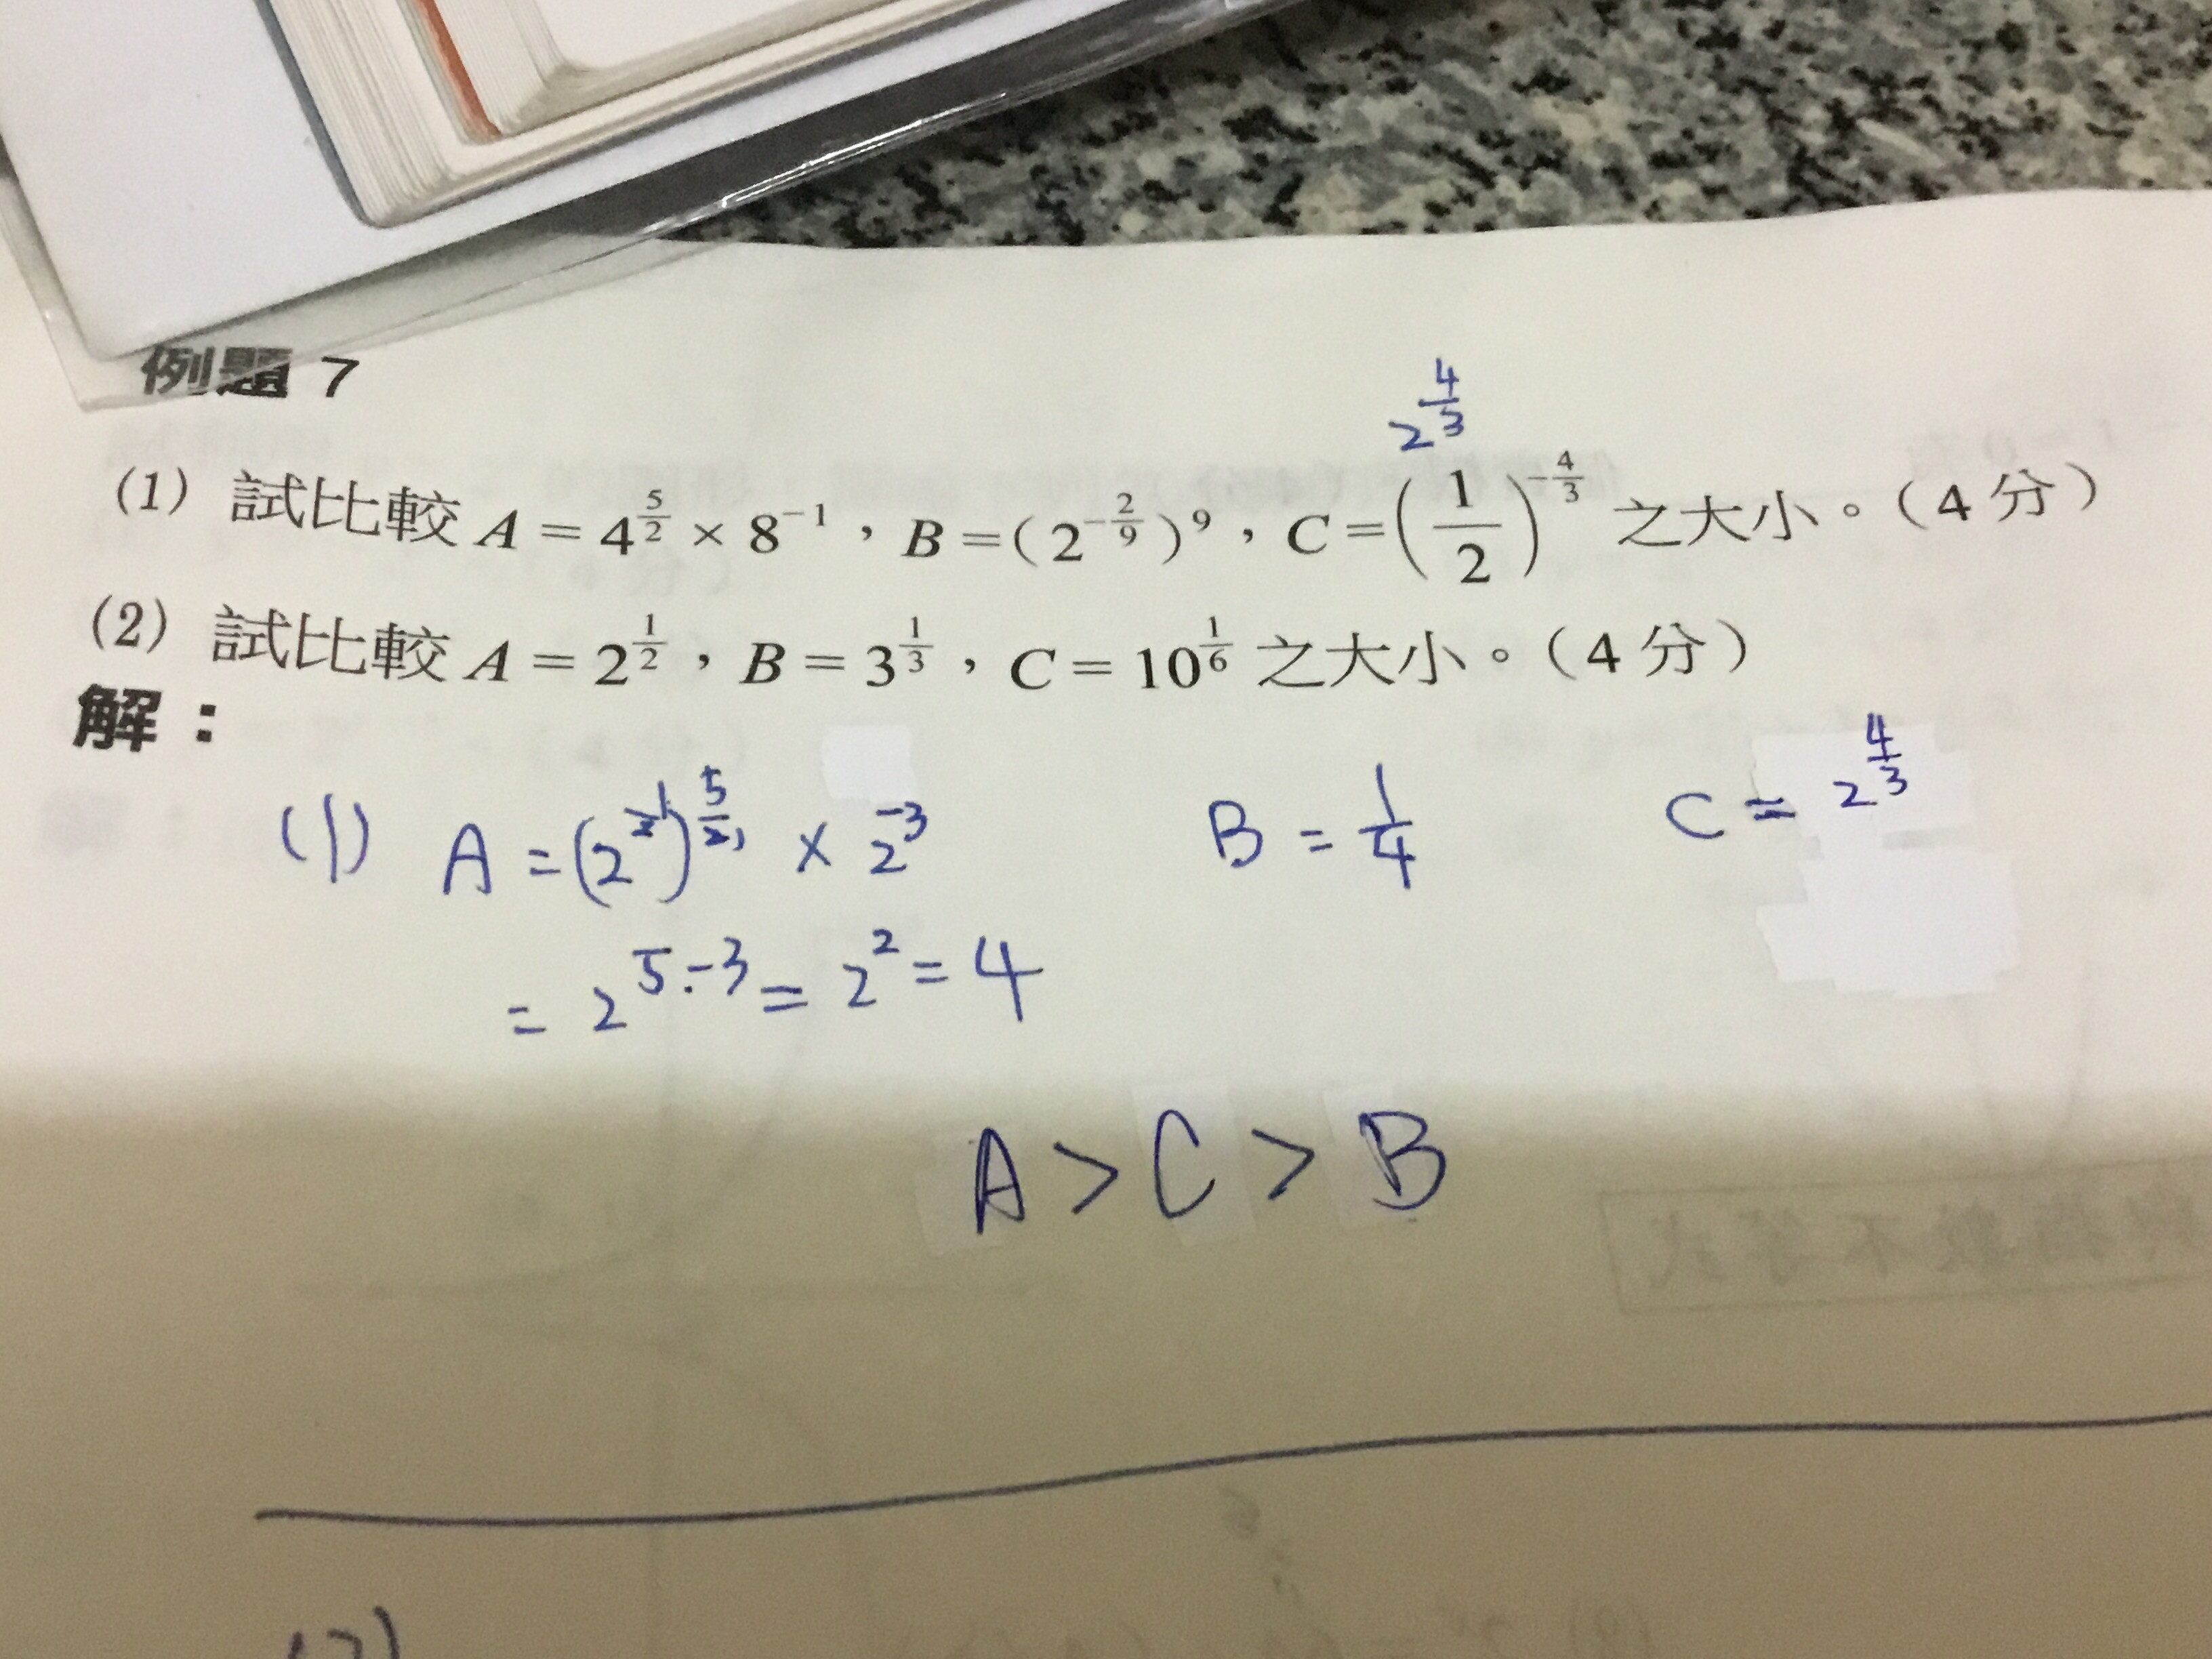 例題 7
2^{\frac{4}{3}}
(1) 試比較 A = 4^{\frac{5}{2}} × 8^{-1}，B = (2^{-\frac{2}{9}})^9，C = (\frac{1}{2})^{-\frac{4}{3}} 之大小。（4 分）
(2) 試比較 A = 2^{\frac{1}{2}}，B = 3^{\frac{1}{3}}，C = 10^{\frac{1}{6}} 之大小。（4 分）
解：
(1) A = (2^2)^{\frac{5}{2}} × 2^{-3} B = \frac{1}{4} C = 2^{\frac{4}{3}}
= 2^{5-3} = 2^2 = 4
A > C > B
(2)